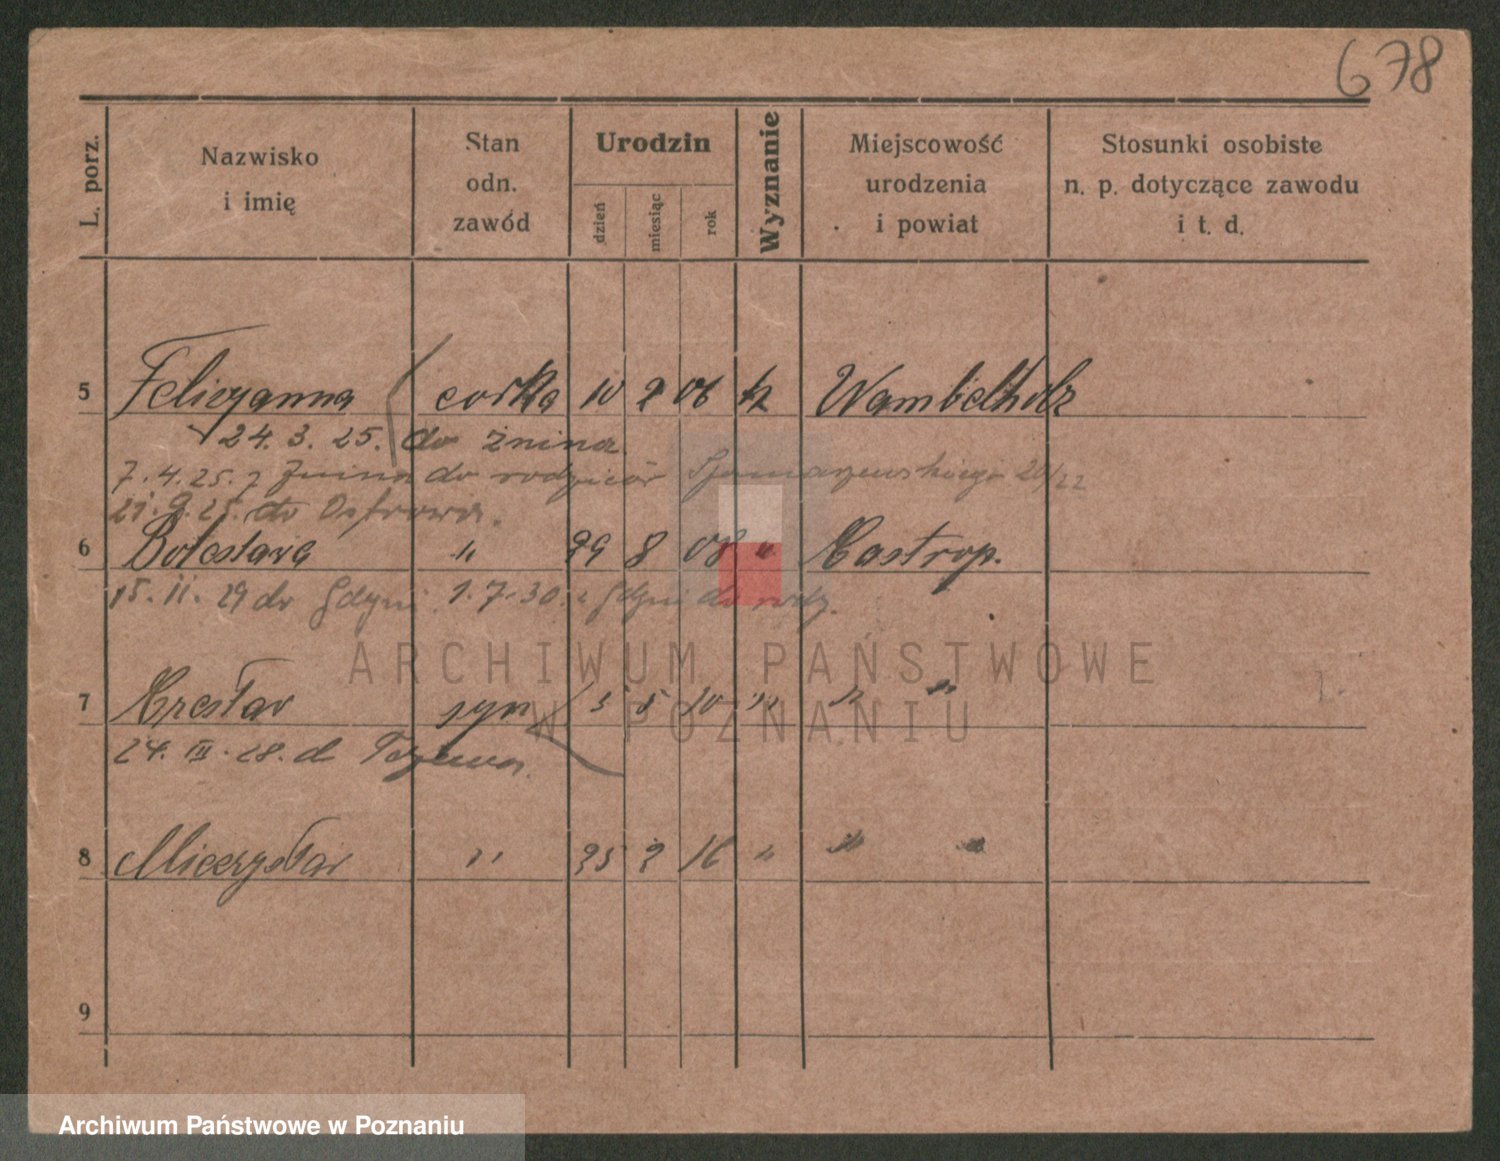 678
L. porz.
Nazwisko
i imię
Stan
odn.
zawód
Urodzin
dzień
miesiąc
rok
Wyznanie
Miejscowość
urodzenia
i powiat
Stosunki osobiste
n. p. dotyczące zawodu
i t. d.
5 Felicyanna corka 10 2 06 k Wambelholz
24. 3. 25. do żnina
7. 4. 25. z Żnina do rodziców 20/22
21. 9. 25. do Ostrowa.
6 Bolesława " 29 8 08 " Castrop.
15. 11. 29 do Gdyni 1. 7. 30. z Gdyni do
7 syn 5 5 10 " " "
24. III. 28. d
8 Mieczysław " 25 2 16 " " "
9
ARCHIWUM PAŃSTWOWE
W POZNANIU
Archiwum Państwowe w Poznaniu